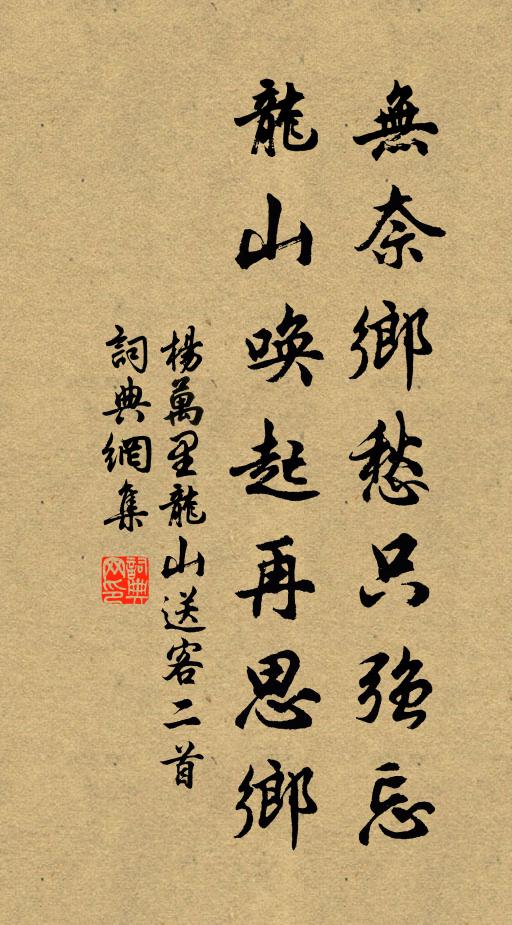 無奈鄉愁只強忘
龍山喚起再思鄉
楊萬里龍山送客二首
詞典網集
詞典網印